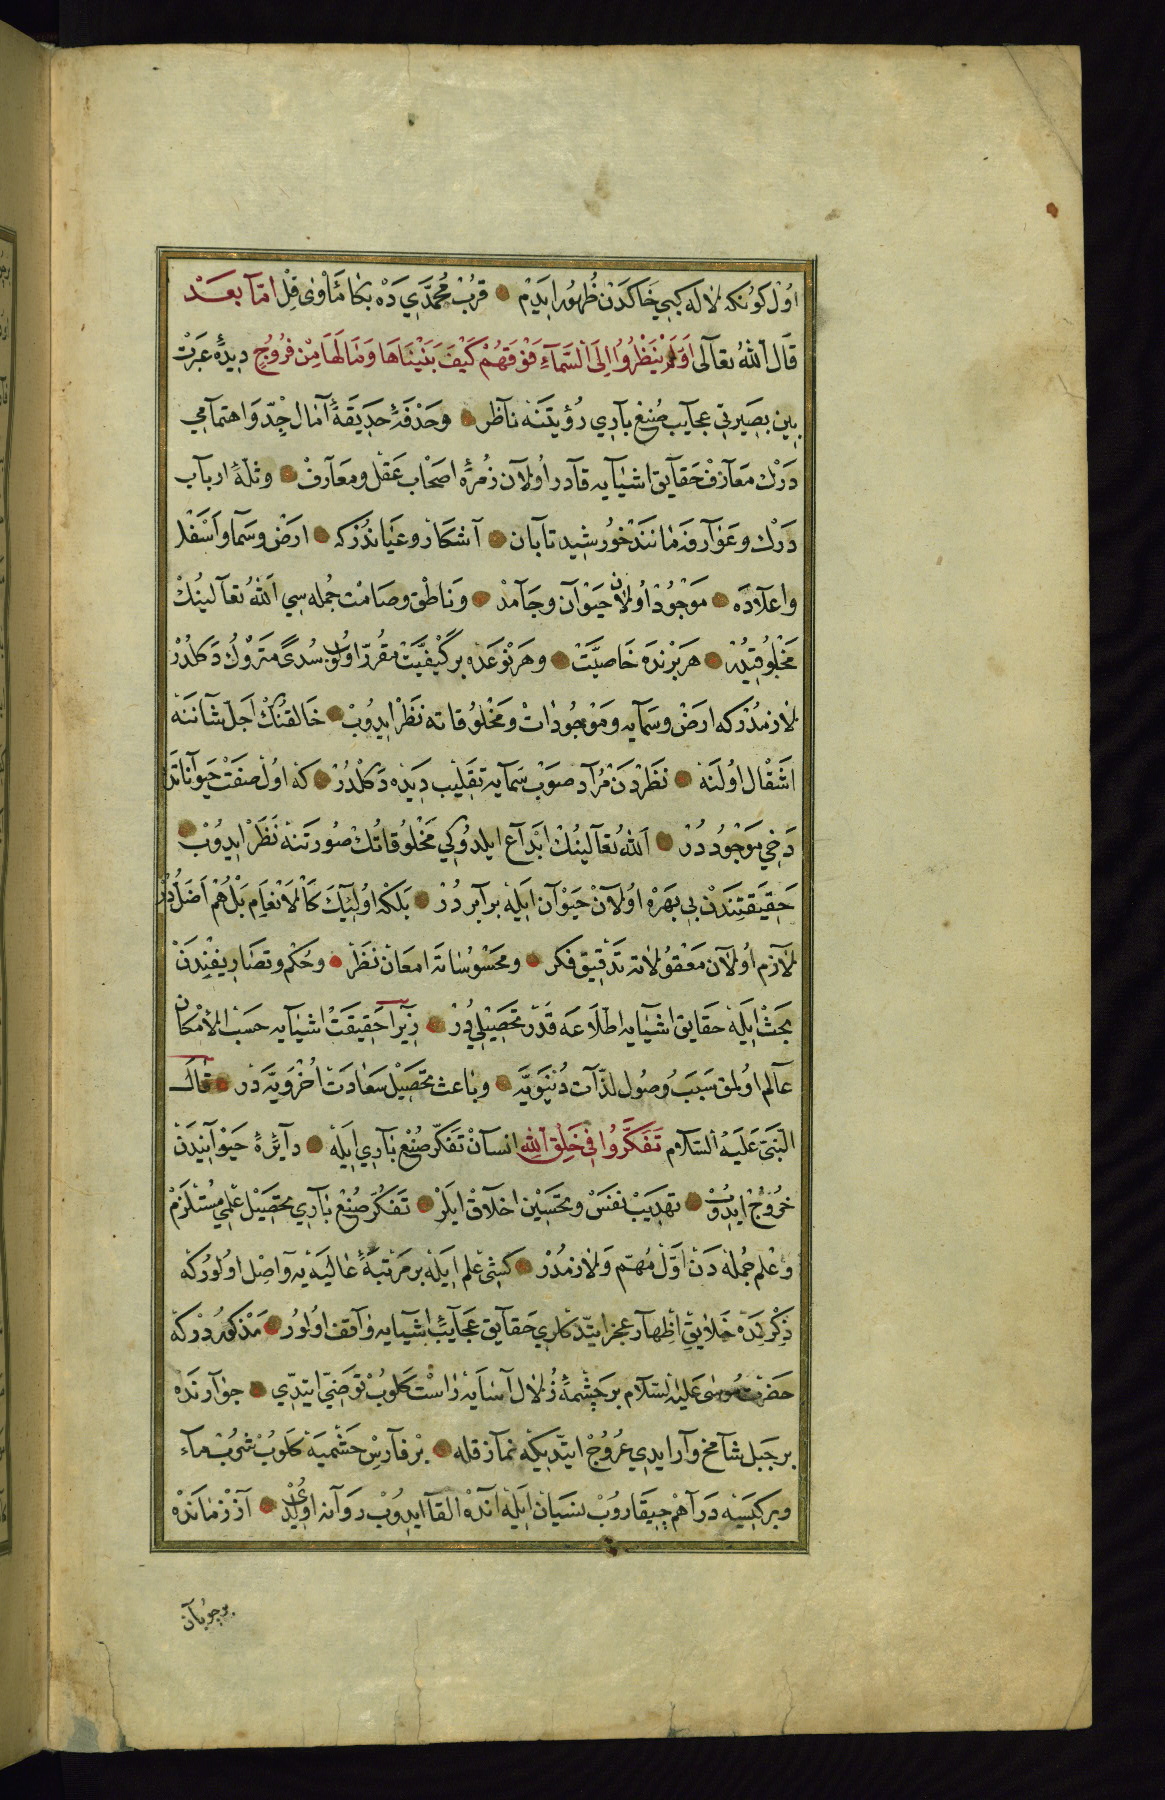 اول كونكه لاله كبي خاكدن ظهور ايديم قرب محمدي ده بكا مأوى قل اما بعد
قال الله تعالى اولم ينظروا الى السماء فوقهم كيف بنيناها وما لها من فروج ديدۀ عبرت
بين بصيرتي عجايب صنع باري رؤيتنه ناظر وحدقۀ حديقۀ آمال جد واهتمامي
درك معارف حقايق اشيايه قادر اولان زمرۀ اصحاب عقل ومعارف وثلۀ ارباب
درك وعوارفه مانند خورشيد تابان آشكار وعياندركه ارض وسما واسفل
واعلاده موجود اولان حيوان وجامد وناطق وصامت جمله سي الله تعالينك
مخلوقيدر هر برنده خاصيت وهر نوعده بر كيفيت مقرر اولوب سدى متروك دكلدر
لازمدركه ارض وسمايه وموجودات ومخلوقاته نظر ايدوب خالقنك اجل شاننه
اشتغال اولنه نظردن مراد صوب سمايه تقليب ديده دكلدر كه اول صفت حيواناتده
دخي موجوددر الله تعالينك ابداع ايلدوكي مخلوقاتك صورتنه نظر ايدوب
حقيقتندن بي بهره اولان حيوان ايله برابردر بلكه اولئك كالانعام بل هم اضلدر
لازم اولان معقولاته تدقيق فكر ومحسوساته امعان نظر وحكم وتصاريفندن
بحث ايله حقايق اشيايه اطلاعه قدر تحصيليدر زيرا حقيقت اشيايه حسب الامكان
عالم اولمق سبب وصول لذات دنيويه وباعث تحصيل سعادت اخرويه در قال
النبي عليه السلام تفكروا في خلق الله انسان تفكر صنع باري ايله دايرۀ حيوانيدن
خروج ايدوب تهذيب نفس وتحسين اخلاق ايلر تفكر صنع باري تحصيل علمي مستلزم
وعلم جمله دن اول مهم ولازمدر كشي علم ايله بر مرتبۀ عاليه يه واصل اولوركه
ذكرنده خلايق اظهار عجز ايتدكلري حقايق عجايب اشيايه واقف اولور مذكوردركه
حضرت موسى عليه السلام بر چشمۀ زلال آسايه راست كلوب توضي ايتدي جوارنده
بر جبل شامخ وار ايدي عروج ايتديكه نماز قله بر فارس چشميه كلوب شرب ماء
وبر كيسه دراهم چيقاروب نسيان ايله انده القا ايدوب روانه اولدي آز زمانده
بر چوبان